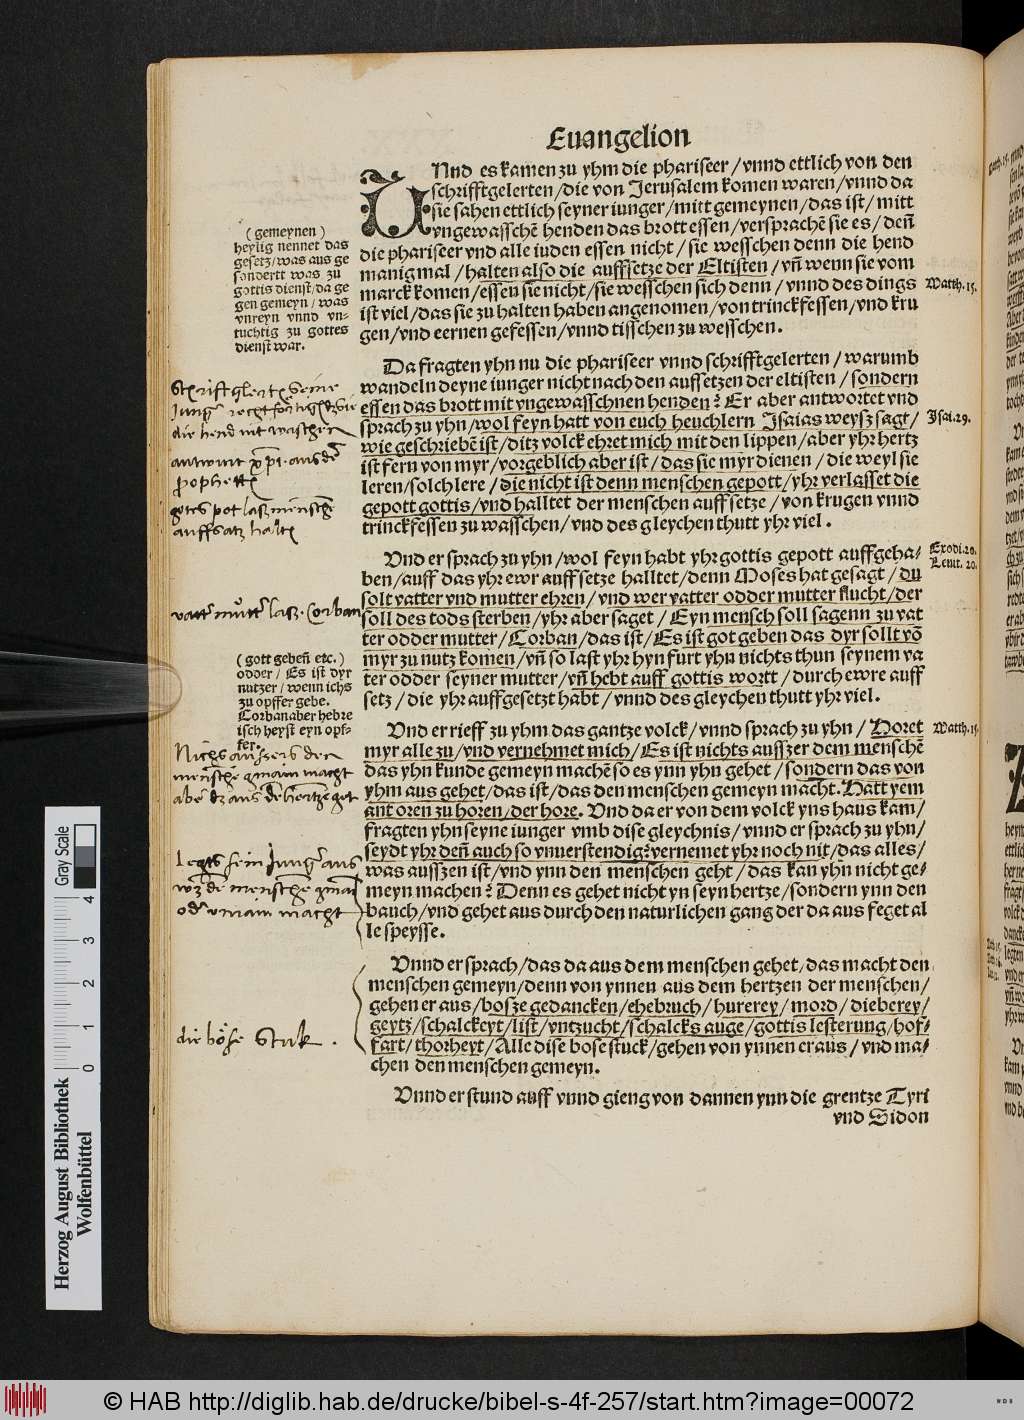 Euangelion
VNnd es kamen zu yhm die phariseer / vnnd ettlich von den
schrifftgelerten / die von Jerusalem komen waren / vnnd da
sie sahen ettlich seyner iunger / mitt gemeynen / das ist / mitt
vngewasschẽ henden das brott essen / versprachẽ sie es / deñ
die phariseer vnd alle iuden essen nicht / sie wesschen denn die hend
manigmal / halten also die auffsetze der Eltisten / vñ wenn sie vom
marck komen / essen sie nicht / sie wesschen sich denn / vnnd des dings
ist viel / das sie zu halten haben angenomen / von trinckfessen / vnd kru
gen / vnd eernen gefessen / vnnd tisschen zu wesschen.
(gemeynen)
heylig nennet das
gesetz / was aus ge
sondertt was zu
gottis dienst / da ge
gen gemeyn / was
vnreyn vnnd vn-
tuchtig zu gottes
dienst war.
Matth. 15.
Da fragten yhn nu die phariseer vnnd schrifftgelerten / warumb
wandeln deyne iunger nicht nach den auffsetzen der eltisten / sondern
essen das brott mit vngewasschnen henden? Er aber antwortet vnd
sprach zu yhn / wol feyn hatt von euch heuchlern Isaias weysz sagt /
wie geschriebẽ ist / ditz volck ehret mich mit den lippen / aber yhr hertz
ist fern von myr / vorgeblich aber ist / das sie myr dienen / die weyl sie
leren / solch lere / die nicht ist denn menschen gepott / yhr verlasset die
gepott gottis / vnd halltet der menschen auffsetze / von krugen vnnd
trinckfessen zu wasschen / vnd des gleychen thutt yhr viel.
Schrifftglerten seine
Jungr rechtfertigt dz sie
die hend nit waschen
antwurt xpi aus dē
propheten
gots pot lasz menschē
auffsatz halten
Isai. 29.
Vnd er sprach zu yhn / wol feyn habt yhr gottis gepott auffgeha-
ben / auff das yhr ewr auffsetze halltet / denn Moses hat gesagt / du
solt vatter vnd mutter ehren / vnd wer vatter odder mutter flucht / der
soll des tods sterben / yhr aber saget / Eyn mensch soll sagenn zu vat
ter odder mutter / Corban / das ist / Es ist got geben das dyr sollt võ
myr zu nutz komen / vñ so last yhr hyn furt yhn nichts thun seynem va
ter odder seyner mutter / vñ hebt auff gottis wortt / durch ewre auff
setz / die yhr auffgesetzt habt / vnnd des gleychen thutt yhr viel.
Exodi. 20.
Leuit. 20.
vatter mutter lasz. Corban
(gott geben etc.)
odder / Es ist dyr
nutzer / wenn ichs
zu opffer gebe.
Corban aber hebre
isch heyst eyn opf-
fer.
Vnd er rieff zu yhm das gantze volck / vnnd sprach zu yhn / Horet
myr alle zu / vnd vernehmet mich / Es ist nichts ausszer dem menschẽ
das yhn kunde gemeyn machẽ so es ynn yhn gehet / sondern das von
yhm aus gehet / das ist / das den menschen gemeyn macht. Hatt yem
ant oren zu horen / der hore. Vnd da er von dem volck yns haus kam /
fragten yhn seyne iunger vmb dise gleychnis / vnnd er sprach zu yhn /
seydt yhr deñ auch so vnuerstendig? vernemet yhr noch nit / das alles /
was aussen ist / vnd ynn den menschen geht / das kan yhn nicht ge-
meyn machen? Denn es gehet nicht yn seyn hertze / sondern ynn den
bauch / vnd gehet aus durch den naturlichen gang der da aus feget al
le speysse.
Matth. 15
Nichs aussers den
menschē gmain macht
aber dz aus dē hertze get
Legts sein Jungr aus
wz dē menschē gmain
odr vnrain macht
Vnnd er sprach / das da aus dem menschen gehet / das macht den
menschen gemeyn / denn von ynnen aus dem hertzen der menschen /
gehen er aus / bosze gedancken / ehebruch / hurerey / mord / dieberey /
geytz / schalckeyt / list / vntzucht / schalcks auge / gottis lesterung / hof-
fart / thorheyt / Alle dise bose stuck / gehen von ynnen eraus / vnd ma-
chen den menschen gemeyn.
die böse Stuk.
Vnnd er stund auff vnnd gieng von dannen ynn die grentze Tyri
vnd Sidon
Herzog August Bibliothek
Wolfenbüttel
0 1 2 3 4
Gray Scale
© HAB http://diglib.hab.de/drucke/bibel-s-4f-257/start.htm?image=00072